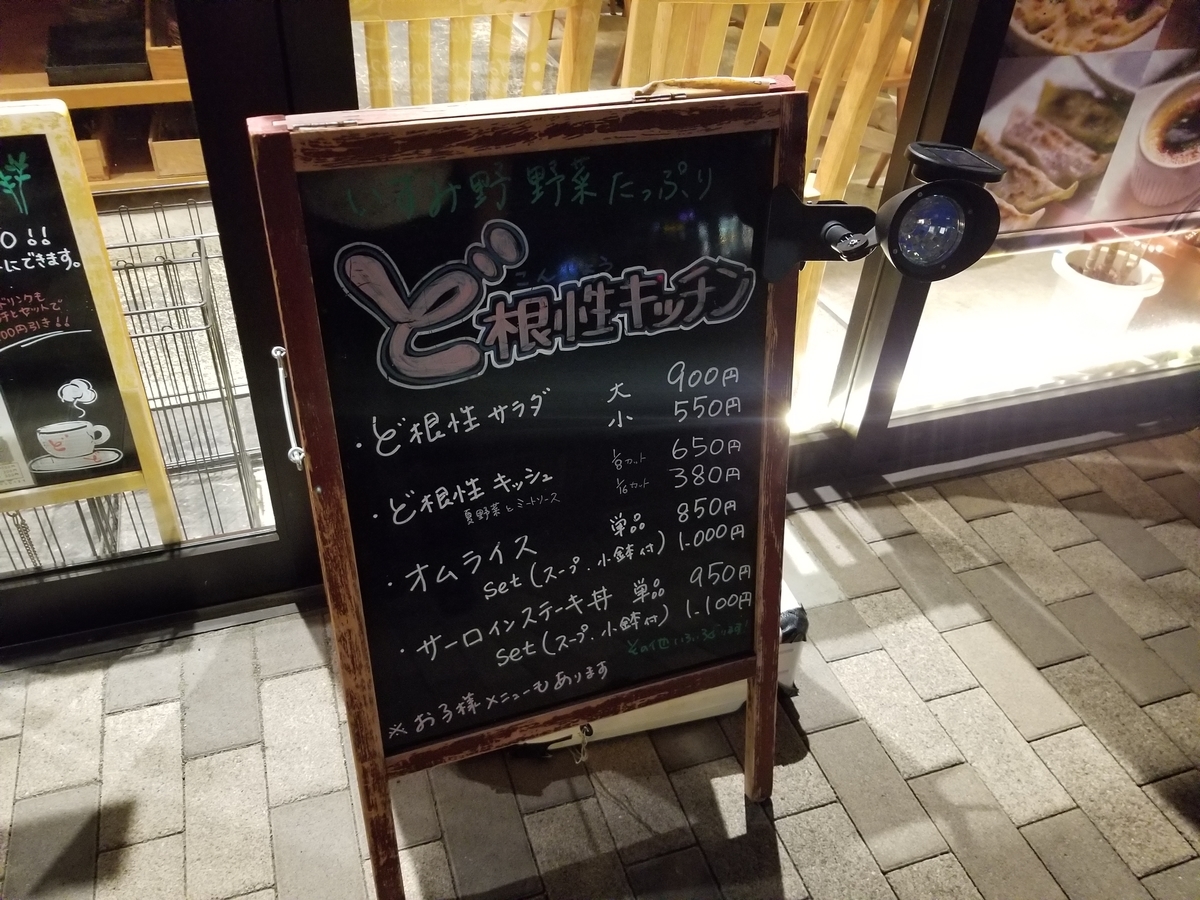 O!!
にできます。
ドリンクも
セットで
00円引き!!
ど
いずみ野 野菜 たっぷり
こんじょう
ど根性キッチン
・ど根性 サラダ 大 900円
小 550円
・ど根性 キッシュ 1/8カット 650円
夏野菜とミートソース 1/16カット 380円
・オムライス 単品 850円
set(スープ・小鉢付) 1.000円
・サーロインステーキ丼 単品 950円
set(スープ・小鉢付) 1.100円
その他いろいろあります!
※お子様メニューもあります